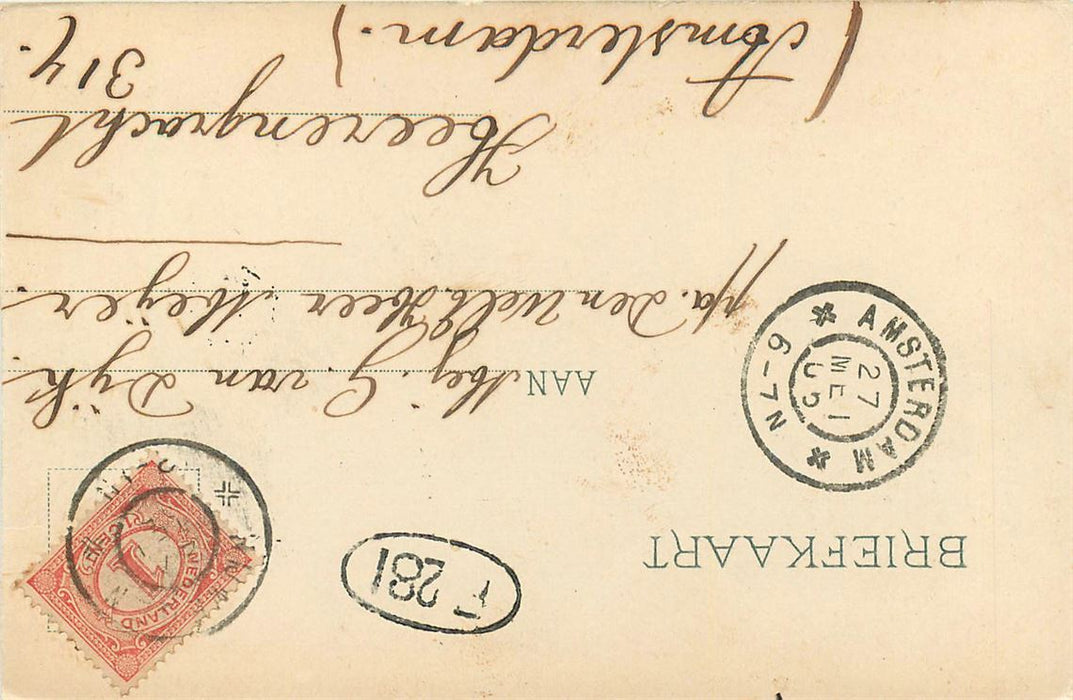 BRIEFKAART
F 281
NEDERLAND
1 CENT
AMSTERDAM
6-7 N
27
MEI
05
AAN Mej. G. van Dijk
p/a. Den WelEd. Heer Meijer.
Heerengracht
317.
(Amsterdam.)